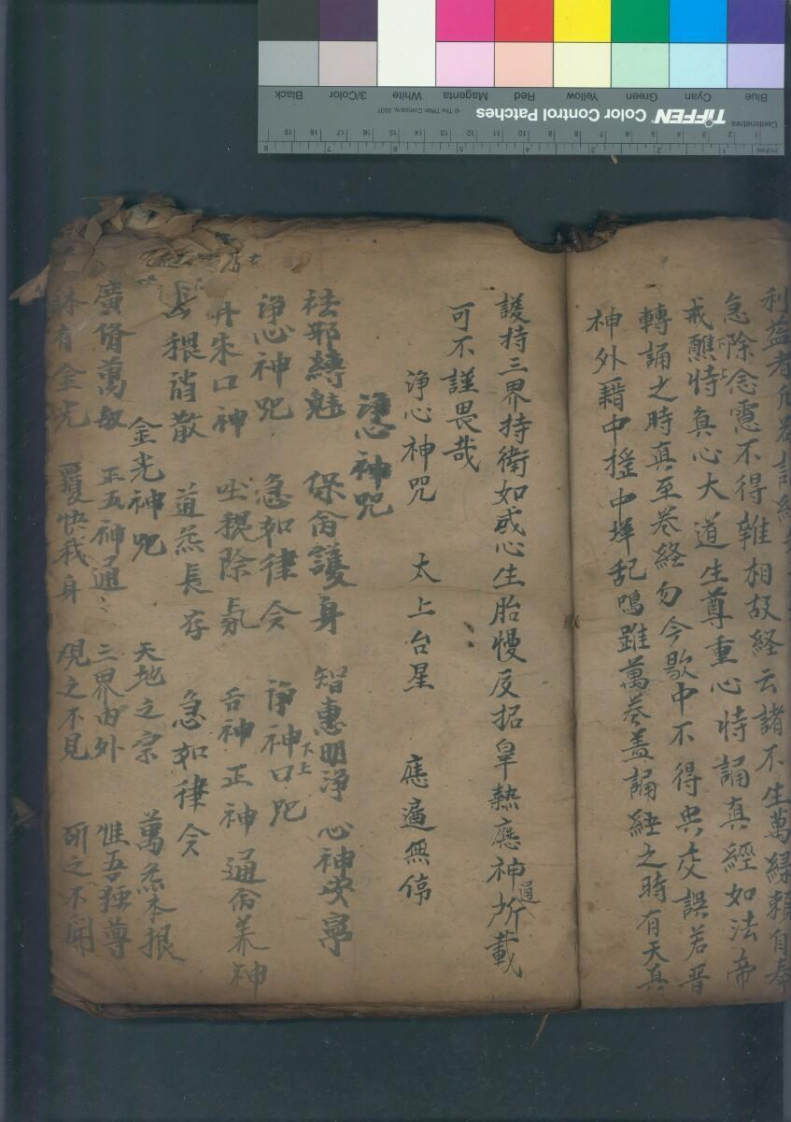 利益者
急除念慮不得雜相故経云諸不生萬緑賴自
戒醮恃真心大道生尊重心恃誦真經如法帝
轉誦之時真至卷経勿今歇中不得
神外籍中 中 乱鳴雖萬卷盖誦経之時有天真
護持三界持衛如或心生胎慢反招辠
應神通所載
可不謹畏哉
浄心神咒 太上台星 應逼無停
淨心神咒
祛邪縛魅 保命護身 智惠明浄 心神安寧
淨心神咒 急如律令 淨神口咒
下上
丹朱口神 吐穢除氛 舌神正神 通命养神
穢消散 道炁長存 急如律令
金光神咒 天地之宗 萬炁本根
廣脩萬 正五神通 三界内外 惟吾獨尊
体有金光 覆快我身 視之不見 听之不聞
TIFFEN Color Control Patches
© The Tiffen Company, 2007
Centimetres
Inches
Blue Cyan Green Yellow Red Magenta White 3/Color Black